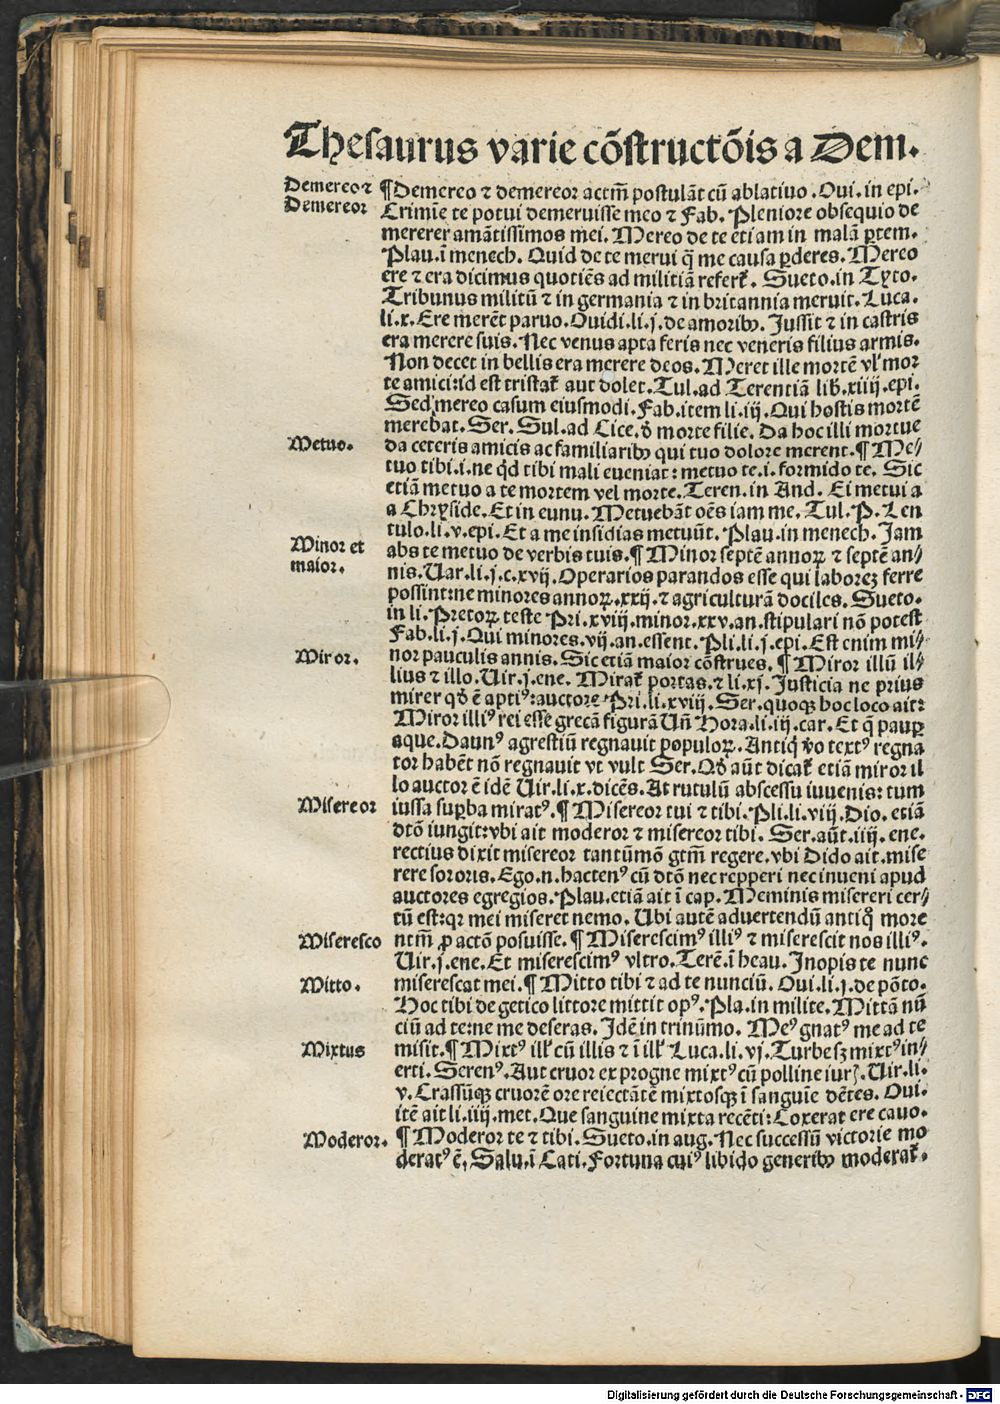 Thesaurus varie cōstructōis a Dem.
Demereo ⁊
Demereor
¶ Demereo ⁊ demereor actm̄ postulāt cū ablatiuo. Oui. in epi.
Crimīe te potui demeruisse meo ⁊ Fab. Pleniore obsequio de
mererer amātissimos mei. Mereo de te etiam in malā ꝑtem.
Plau. ī menech. Quid de te merui q̄ me causa ꝑderes. Mereo
ere ⁊ era dicimus quotiēs ad militiā refert̄. Sueto. in Tyto.
Tribunus militū ⁊ in germania ⁊ in britannia meruit. Luca.
li. x. Ere merēt paruo. Ouidi. li. j. de amoribꝰ. Jussit ⁊ in castris
era merere suis. Nec venus apta feris nec veneris filius armis.
Non decet in bellis era merere deos. Meret ille mortē vl' mor
te amici: id est tristat̄ aut dolet. Tul. ad Terentiā lib. xiiij. epi.
Sed mereo casum eiusmodi. Fab. item li. iij. Qui hostis mortē
merebat. Ser. Sul. ad Cice. ꝺ̄ morte filie. Da hoc illi mortue
Metuo.
da ceteris amicis ac familiaribꝰ qui tuo dolore merent. ¶ Me⸗
tuo tibi. i. ne qd̄ tibi mali eueniat: metuo te. i. formido te. Sic
etiā metuo a te mortem vel morte. Teren. in And. Ei metui a
a Chryside. Et in eunu. Metuebāt oēs iam me. Tul. P. Len
tulo. li. v. epi. Et a me insidias metuūt. Plau. in menech. Jam
Minor et
maior.
abs te metuo de verbis tuis. ¶ Minor septē annoꝝ ⁊ septē an⸗
nis. Var. li. j. c. xvij. Operarios parandos esse qui laboreꝫ ferre
possint: ne minores annoꝝ. xxij. ⁊ agriculturā dociles. Sueto.
in li. Pretoꝝ teste Pri. xviij. minor. xxv. an. stipulari nō potest
Fab. li. j. Qui minores. vij. an. essent. Pli. li. j. epi. Est enim mi⸗
Miror.
nor pauculis annis. Sic etiā maior cōstrues. ¶ Miror illū il⸗
lius ⁊ illo. Vir. j. ene. Mirat̄ portas. ⁊ li. xj. Justicia ne prius
mirer qd̄ ē aptiꝰ: auctore Pri. li. xviij. Ser. quoqꝫ hoc loco ait:
Miror illiꝰ rei esse grecā figurā Uñ Hora. li. iij. car. Et q̄ pauꝑ
aque. Daunꝰ agrestiū regnauit populoꝝ. Antiq̄ v̄o textꝰ regna
tor habēt nō regnauit vt vult Ser. Qd̄ aūt dicat̄ etiā miror il
lo auctor ē idē Vir. li. x. dicēs. At rutulū abscessu iuuenis: tum
Misereor
iussa suꝑba miratꝰ. ¶ Misereor tui ⁊ tibi. Pli. li. viij. Dio. etiā
dtō iungit: vbi ait moderor ⁊ misereor tibi. Ser. aūt. iiij. ene.
rectius dixit misereor tantūmō gtm̄ regere. vbi Dido ait. mise
rere sororis. Ego. n. hactenꝰ cū dtō nec repperi nec inueni apud
auctores egregios. Plau. etiā ait ī cap. Meminis misereri cer⸗
tū est: qꝛ mei miseret nemo. Ubi autē aduertendū antiq̄ more
Miseresco
ntm̄ ꝓ actō posuisse. ¶ Miserescimꝰ illiꝰ ⁊ miserescit nos illiꝰ.
Vir. j. ene. Et miserescimꝰ vltro. Terē. ī heau. Inopis te nunc
Mitto.
miserescat mei. ¶ Mitto tibi ⁊ ad te nunciū. Oui. li. j. de pōto.
Hoc tibi de getico littore mittit opꝰ. Pla. in milite. Mittā nū
ciū ad te: ne me deseras. Idē in trinūmo. Meꝰ gnatꝰ me ad te
Mixtus
misit. ¶ Mixtꝰ ill' cū illis ⁊ ī ill' Luca. li. vj. Turbesꝫ mixtꝰ in⸗
erti. Serenꝰ. Aut cruor ex progne mixtꝰ cū polline iurꝭ. Vir. li.
v. Crassūqꝫ cruorē ore reiectātē mixtosqꝫ ī sanguīe dētes. Oui.
itē ait li. iiij. met. Que sanguine mixta recēti: Coxerat ere cauo.
Moderor.
¶ Moderor te ⁊ tibi. Sueto. in aug. Nec successū victorie mo
deratꝰ ē. Salu. ī Cati. Fortuna cuiꝰ libido generibꝰ moderat̄.
Digitalisierung gefördert durch die Deutsche Forschungsgemeinschaft - DFG